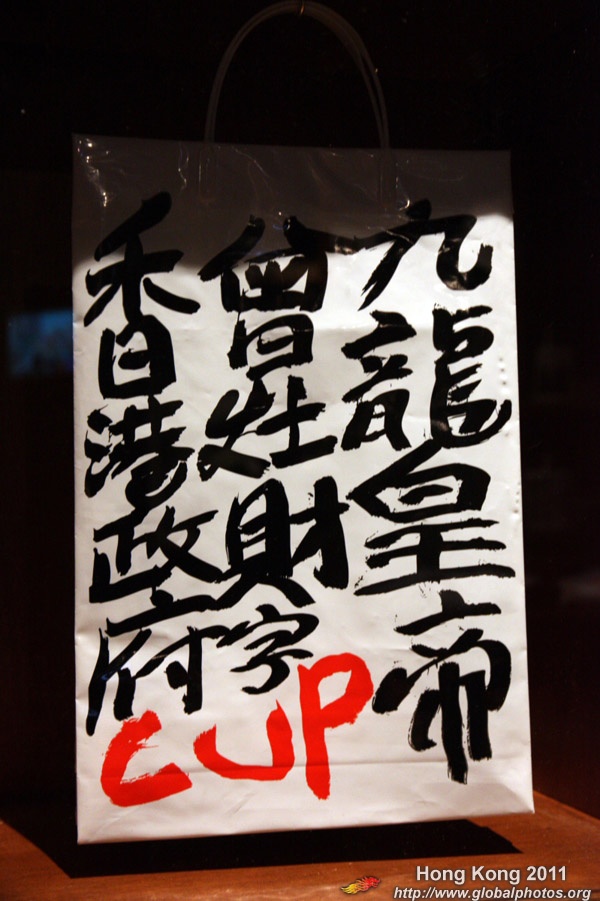 九龍皇帝
曾灶財字
香港政府
CUP
Hong Kong 2011
http://www.globalphotos.org